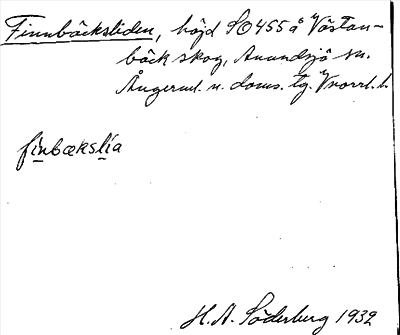 Finnbäcksliden, höjd SO 455 å Västan-
bäck skog, Anundsjö sn.
Ångerml. n. doms. tg. Vnorrl. l.
finbækslia
H.A. Söderberg 1932